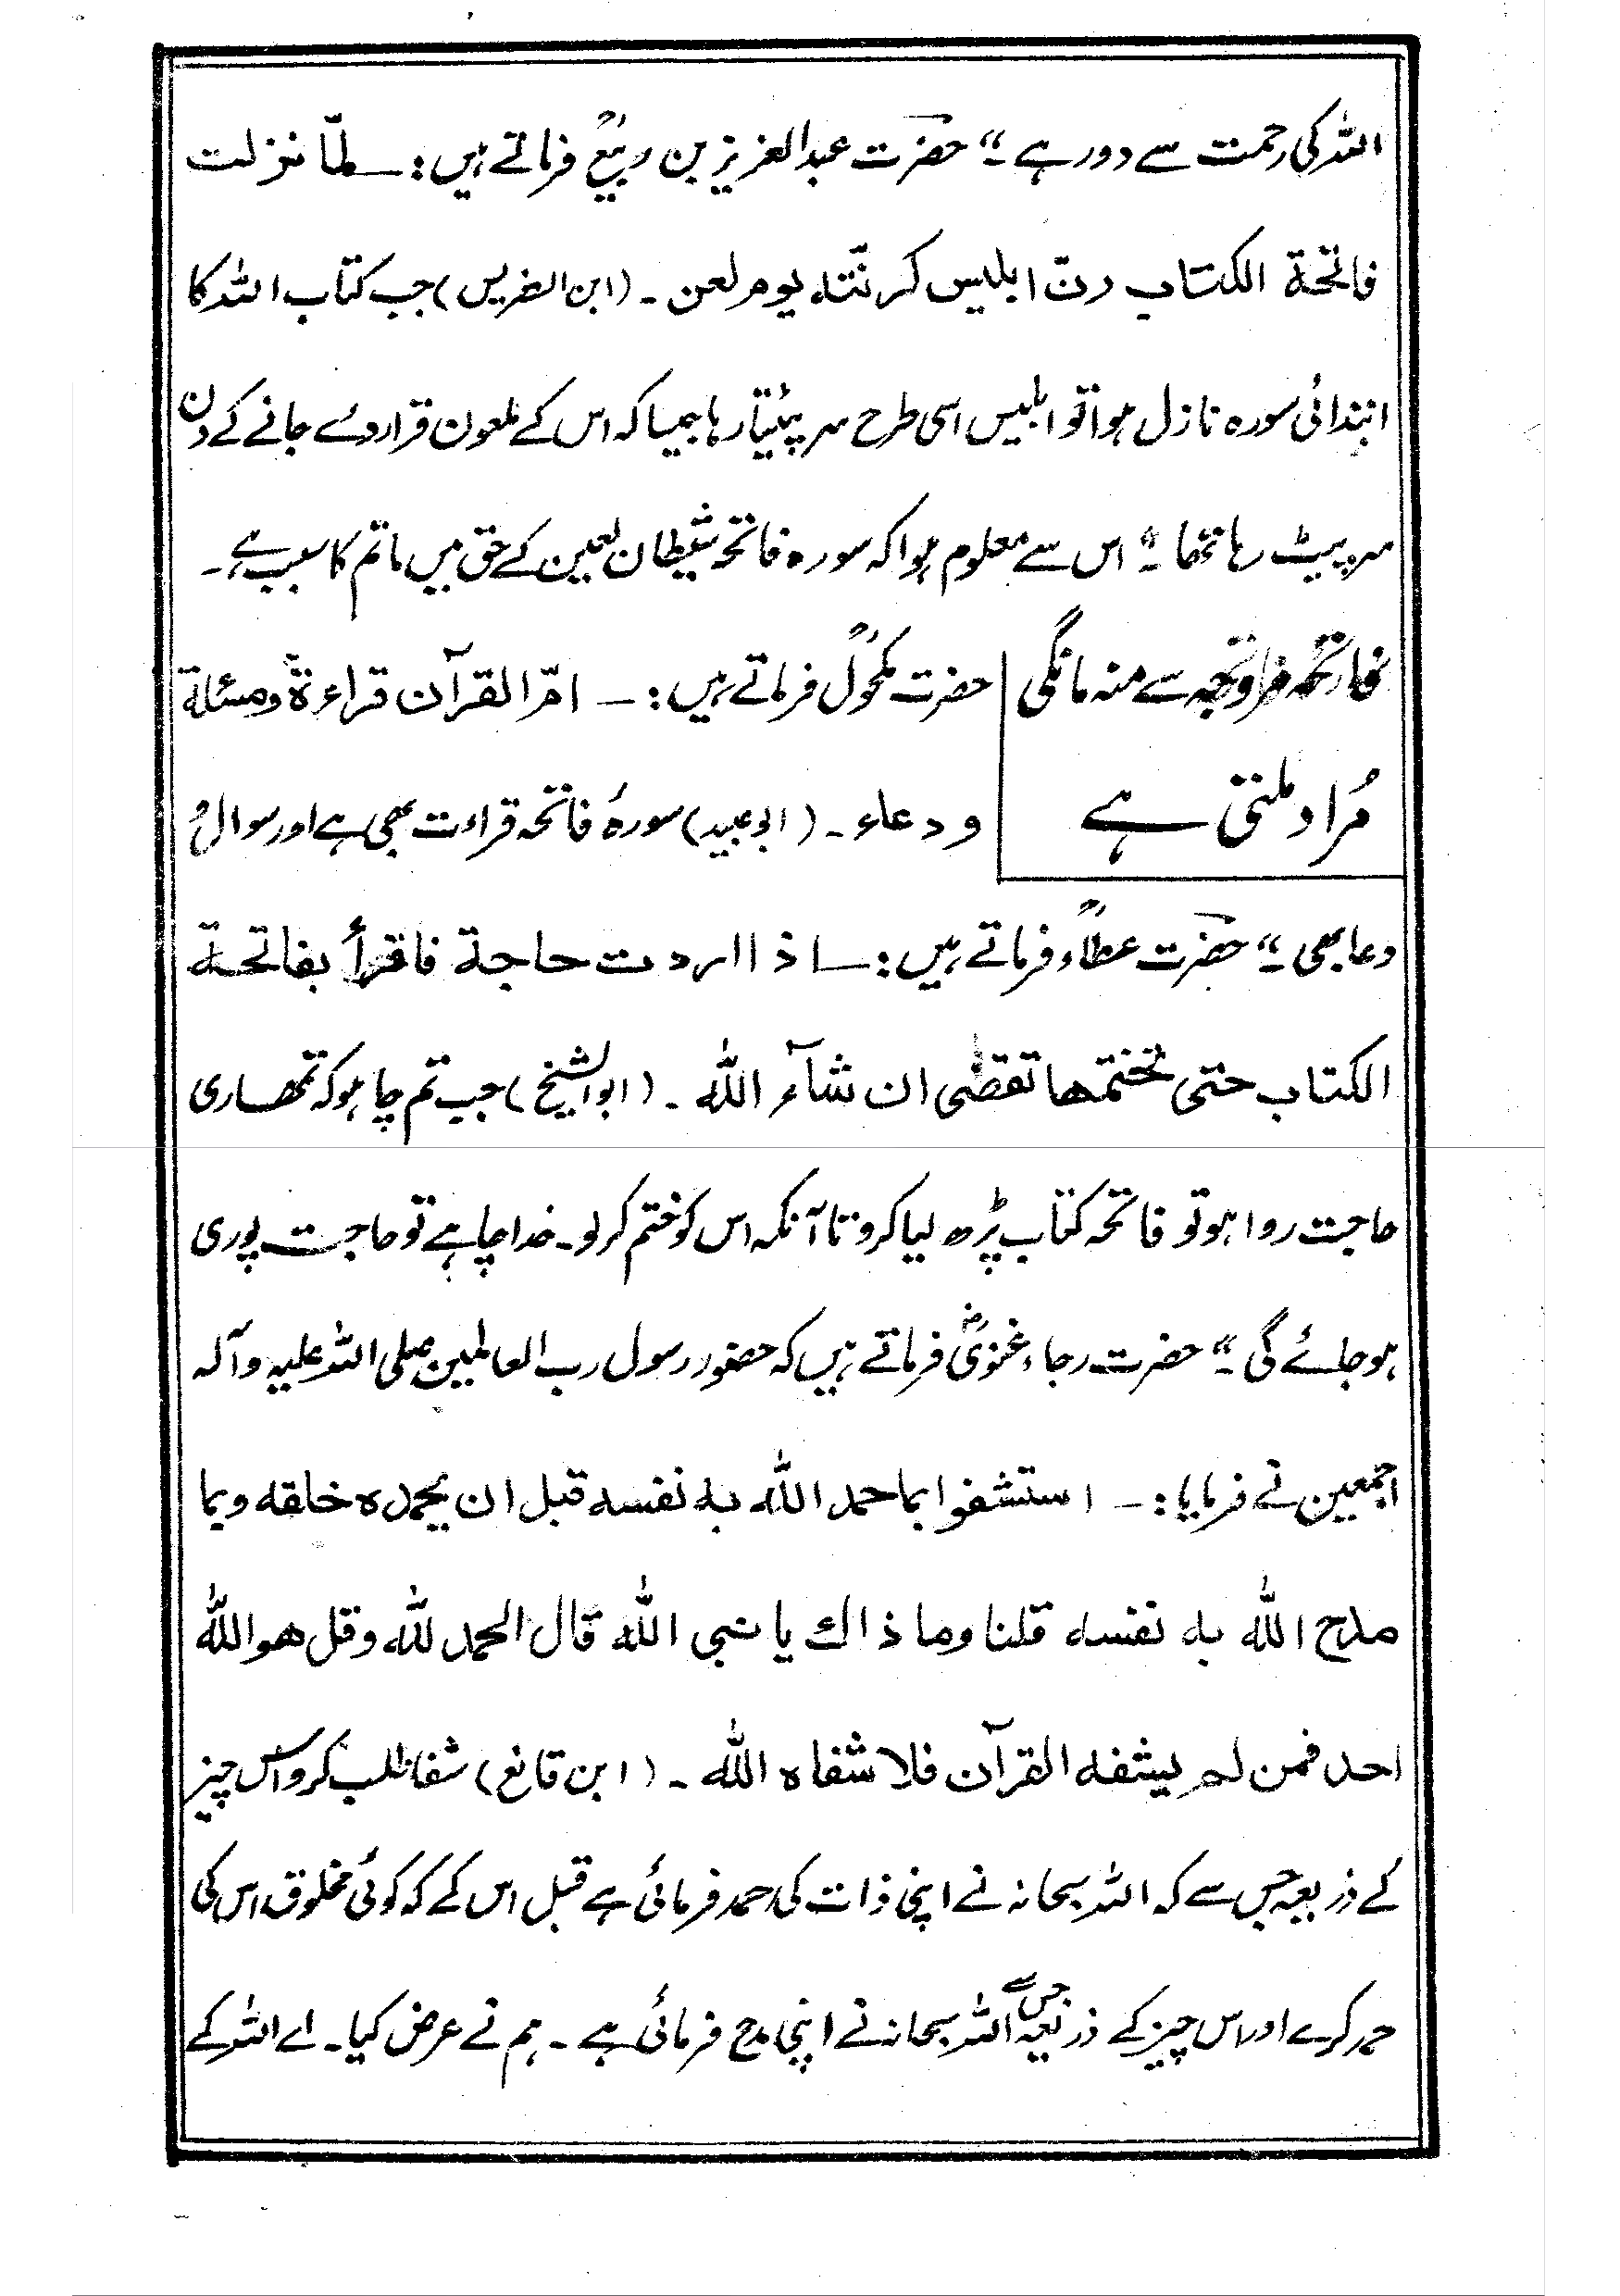 اللہ کی رحمت سے دور ہے ۔“ حضرت عبدالعزیز بن ربیعؒ فرماتے ہیں :۔ لمّا نزلت
فاتحۃ الکتاب رنّ ابلیس کرنّتہ یوم لعن ۔ (ابن الضریس) جب کتاب اللہ کا
ابتدائی سورہ نازل ہوا تو ابلیس اسی طرح سر پیٹتا رہا جیسا کہ اس کے ملعون قرار دۓ جانے کے دن
سر پیٹ رہا تھا ۔“ اس سے معلوم ہوا کہ سورہ فاتحہ شیطان لعین کے حق میں ماتم کا سبب ہے ۔
فاتحہ مزاوجہ سے منہ مانگی
مُراد ملتی ہے
حضرت مکحولؒ فرماتے ہیں :۔ امّ القرآن قراءۃ ومسئلۃ
و دعاء ۔ (ابو عبید) سورۂ فاتحہ قراءت بھی ہے اور سوال و
دعا بھی ۔“ حضرت عطاءؒ فرماتے ہیں :۔ اذا اردت حاجۃ فاقرأ بفاتحۃ
الکتاب حتی تختمھا تقضٰی ان شآء اللہ ۔ (ابوالشیخ) جب تم چاہو کہ تمھاری
حاجت روا ہو تو فاتحہ کتاب پڑھ لیا کرو تا آنکہ اس کو ختم کر لو ۔ خدا چاہے تو حاجت پوری
ہو جائے گی ۔“ حضرت رجاء غنویؓ فرماتے ہیں کہ حضور رسول رب العالمین صلی اللہ علیہ وآلہ
اجمعین نے فرمایا :۔ استشفوا بما حمد اللہ بہ نفسہ قبل ان یحمدہ خلقہ وبما
مدح اللہ بہ نفسہ قلنا وما ذاک یا نبی اللہ قال الحمد للہ وقل ھو اللہ
احد فمن لم یشفہ القرآن فلا شفاہ اللہ ۔ (ابن قانع) شفا طلب کرو اس چیز
کے ذریعہ جس سے کہ اللہ سبحانہ نے اپنی ذات کی حمد فرمائی ہے قبل اس کے کہ کوئی مخلوق اس کی
حمد کرے اور اس چیز کے ذریعہ جس سے اللہ سبحانہ نے اپنی مدح فرمائی ہے ۔ ہم نے عرض کیا ۔ اے اللہ کے